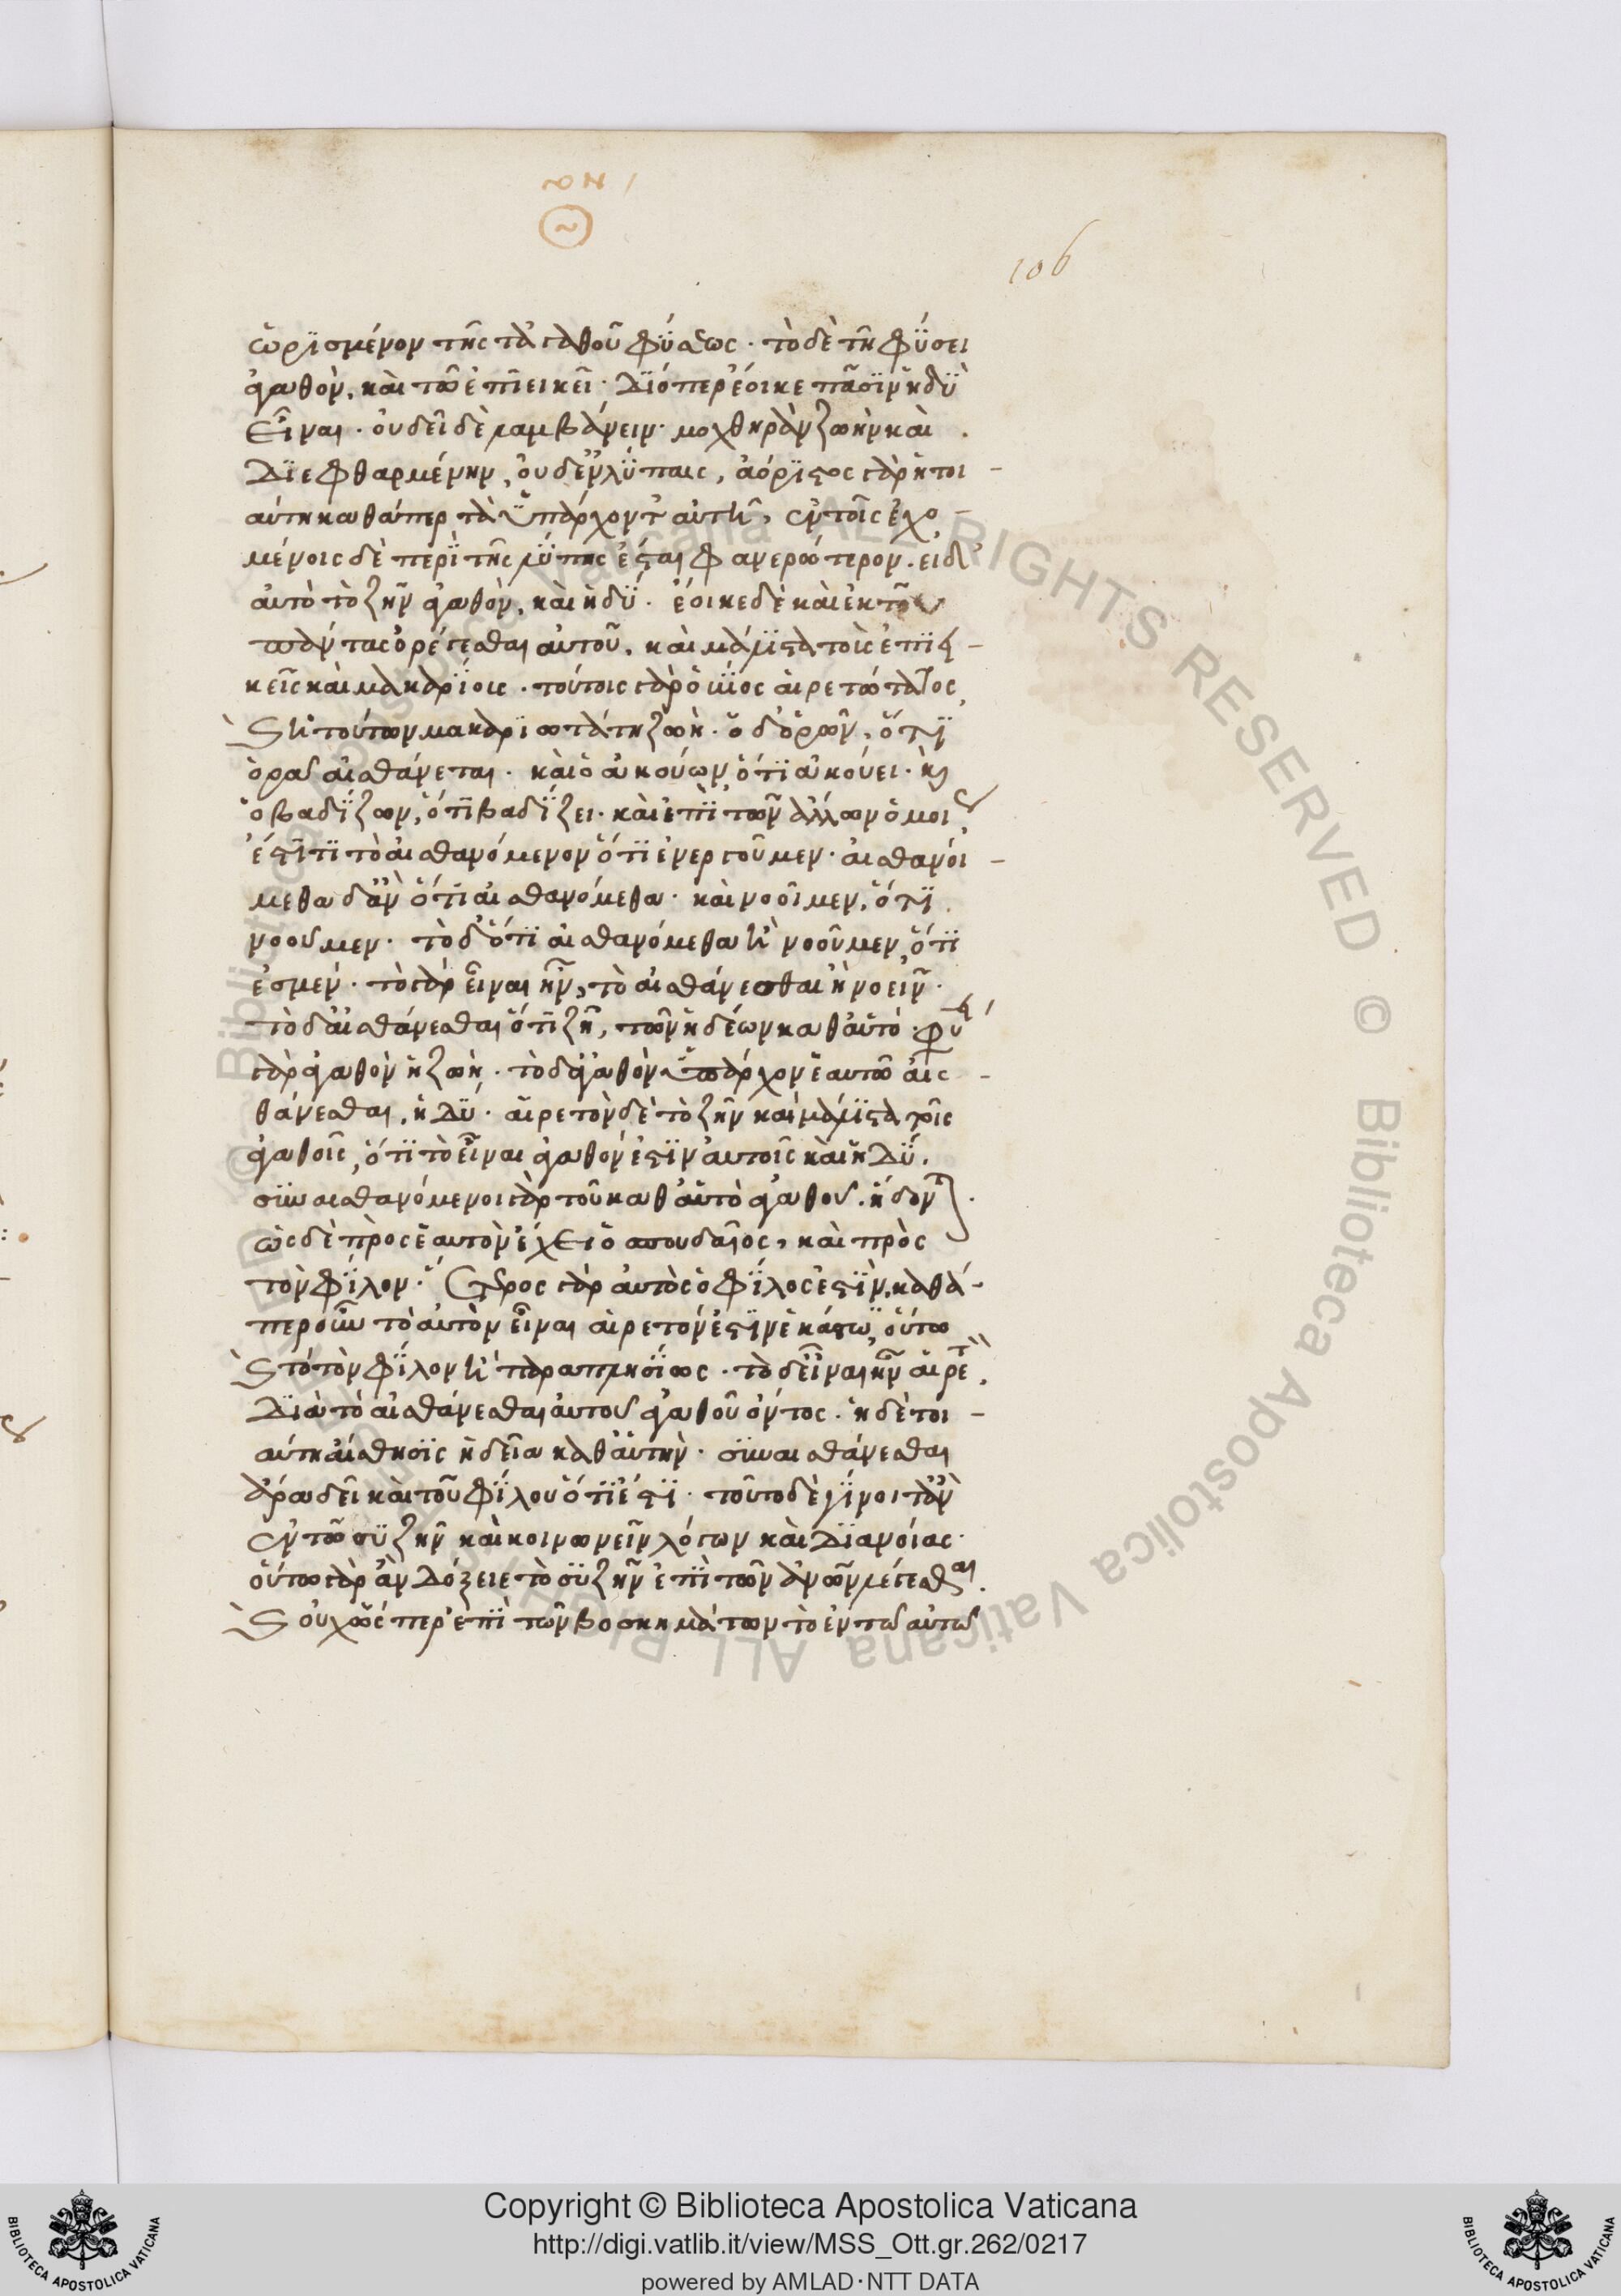 106
ὡρισμένον τῆς τἀγαθοῦ φύσεως · τὸ δὲ τῆ φύσει
ἀγαθὸν, καὶ τῶ ἐπιεικεῖ · Διόπερ ἔοικε πᾶσιν ἡδὺ
εἶναι · οὐ δεῖ δὲ λαμβάνειν · μοχθηρὰν ζωὴν καὶ
Διεφθαρμένην, οὐδ' ἐν λύπαις, ἀόριστος γὰρ ἡ τοι-
αύτη καθάπερ τὰ ὑπάρχοντ' αὐτῆ, ἐν τοῖς ἐχο-
μένοις δὲ περὶ τῆς λύπης ἔσται φανερώτερον. εἰ δ'
αὐτὸ τὸ ζῆν ἀγαθὸν, καὶ ἡδύ · ἔοικε δὲ καὶ ἐκ τοῦ
πάντας ὀρέγεσθαι αὐτοῦ, καὶ μάλιστα τοὺς ἐπιει-
κεῖς καὶ μακαρίοις · τούτοις γὰρ ὁ βίος αἱρετώτατος,
καὶ ἡ τούτων μακαριωτάτη ζωή · ὁ δ' ὁρῶν, ὅτι
ὁρᾶ αἰσθάνεται · καὶ ὁ ἀκούων, ὅτι ἀκούει · καὶ
ὁ βαδίζων, ὅτι βαδίζει · καὶ ἐπὶ τῶν ἄλλων ὁμοίως
ἔστι τι τὸ αἰσθανόμενον ὅτι ἐνεργοῦμεν · αἰσθανοί-
μεθα δ' ἂν ὅτι αἰσθανόμεθα · καὶ νοοῖμεν, ὅτι
νοοῦμεν · τὸ δ' ὅτι αἰσθανόμεθα ἢ νοοῦμεν, ὅτι
ἐσμέν · τὸ γὰρ εἶναι ἦν, τὸ αἰσθάνεσθαι ἢ νοεῖν ·
τὸ δ' αἰσθάνεσθαι ὅτι ζῆ, τῶν ἡδέων καθ' αὑτό · φύσει
γὰρ ἀγαθὸν ἡ ζωὴ · τὸ δ' ἀγαθὸν ὑπάρχον ἑαυτῶ αἰσ-
θάνεσθαι, ἡδύ · αἱρετὸν δὲ τὸ ζῆν καὶ μάλιστα τοῖς
ἀγαθοῖς, ὅτι τὸ εἶναι ἀγαθόν ἐστιν αὐτοῖς καὶ ἡδύ.
συναισθανόμενοι γὰρ τοῦ καθ' αὑτὸ ἀγαθοῦ, ἥδονται.
ὡς δὲ πρὸς ἑαυτὸν ἔχει ὁ σπουδαῖος, καὶ πρὸς
τὸν φίλον · ἕτερος γὰρ αὐτὸς ὁ φίλος ἐστὶν, καθά-
περ οὖν τὸ αὐτὸν εἶναι αἱρετόν ἐστιν ἑκάστω, οὕτω
καὶ τὸ τὸν φίλον ἢ παραπλησίως · τὸ δ' εἶναι ἦν αἱρετὸν,
Διὰ τὸ αἰσθάνεσθαι αὐτοῦ ἀγαθοῦ ὄντος · ἡ δὲ τοι-
αύτη αἴσθησις ἡδεῖα καθ' αὑτὴν · συναισθάνεσθαι
ἄρα δεῖ καὶ τοῦ φίλου ὅτι ἔστι · τοῦτο δὲ γίνοιτ' ἂν
ἐν τῶ συζῆν καὶ κοινωνεῖν λόγων καὶ Διανοίας ·
οὕτω γὰρ ἂν Δόξειε τὸ συζῆν ἐπὶ τῶν ἀνων λέγεσθαι.
καὶ οὐχ ὥσπερ ἐπὶ τῶν βοσκημάτων τὸ ἐν τῶ αὐτῶ
© Biblioteca Apostolica Vaticana ALL RIGHTS RESERVED © Biblioteca Apostolica Vaticana ALL RIGHTS RESERVED
BIBLIOTECA APOSTOLICA VATICANA
Copyright © Biblioteca Apostolica Vaticana
http://digi.vatlib.it/view/MSS_Ott.gr.262/0217
powered by AMLAD·NTT DATA
BIBLIOTECA APOSTOLICA VATICANA